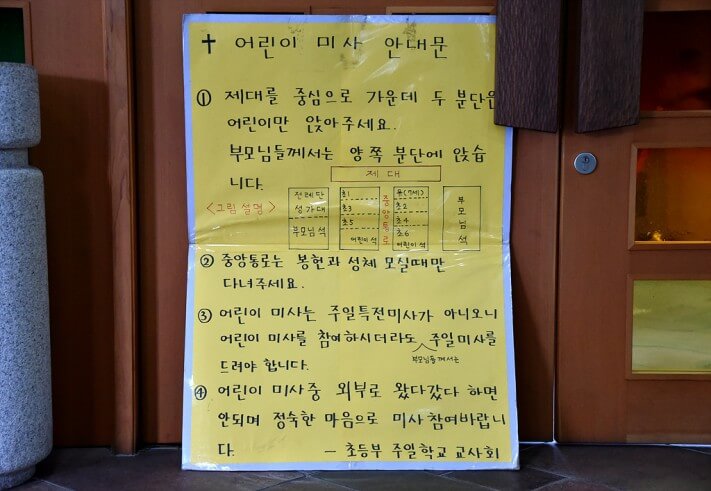 ✝ 어린이 미사 안내문
① 제대를 중심으로 가운데 두 분단은
어린이만 앉아주세요.
부모님들께서는 양쪽 분단에 앉습
니다.
제대
<그림 설명>
전례단
성가대
부모님 석
초1
초3
초5
어린이 석
중앙통로
유(7세)
초2
초4
초6
어린이 석
부모님석
② 중앙통로는 봉헌과 성체 모실때만
다녀주세요.
③ 어린이 미사는 주일특전미사가 아니오니
어린이 미사를 참여하시더라도 주일미사를
부모님들께서는
드려야 합니다.
④ 어린이 미사중 외부로 왔다갔다 하면
안되며 정숙한 마음으로 미사참여바랍니
다. - 초등부 주일학교 교사회